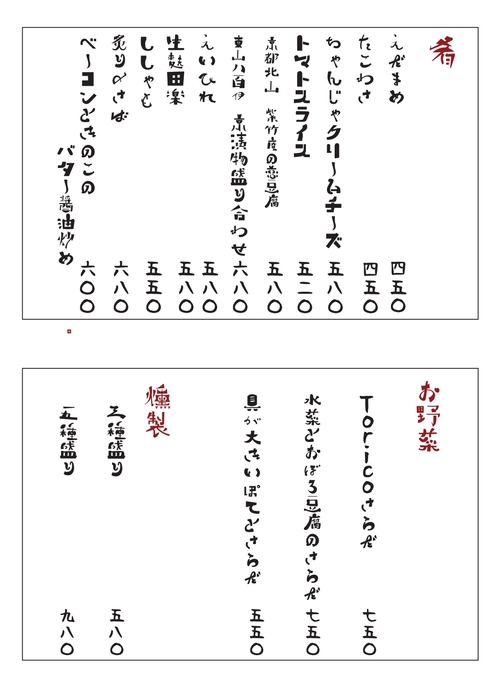 肴
えだまめ 四五〇
たこわさ 四五〇
ちゃんじゃクリームチーズ 五八〇
トマトスライス 五二〇
京都北山 紫竹庵の葱豆腐 五八〇
東山八百伊 京漬物盛り合わせ 六八〇
えいひれ 五八〇
生麩田楽 五八〇
ししゃも 五五〇
炙り〆さば 六八〇
ベーコンときのこの
バター醤油炒め 六〇〇
お野菜
Toricoさらだ 七五〇
水菜とおぼろ豆腐のさらだ 七五〇
具が大きいぽてとさらだ 五五〇
燻製
三種盛り 五八〇
五種盛り 九八〇